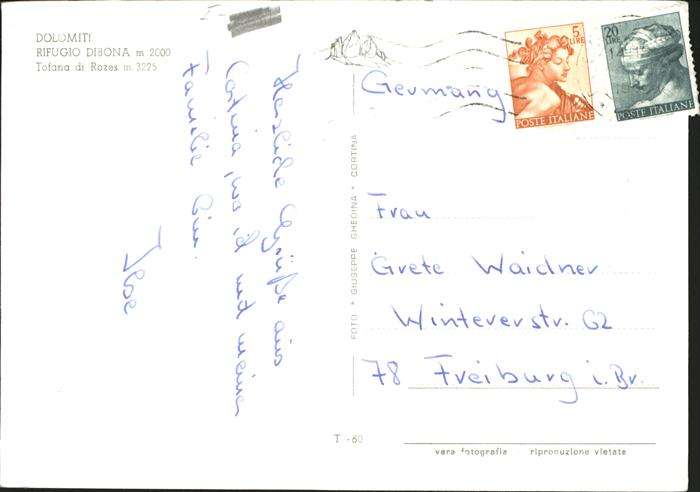 DOLOMITI
RIFUGIO DIBONA m. 2000
Tofana di Rozes m. 3225
Herzliche Grüße aus
Cortina, wo ich mit meiner
Familie bin.
Ilse
FOTO * GIUSEPPE GHEDINA * CORTINA
5
LIRE
POSTE ITALIANE
20
LIRE
POSTE ITALIANE
Germany
Frau
Grete Waidner
Wintererstr. 62
78 Freiburg i. Br.
T - 60
vera fotografia riproduzione vietata